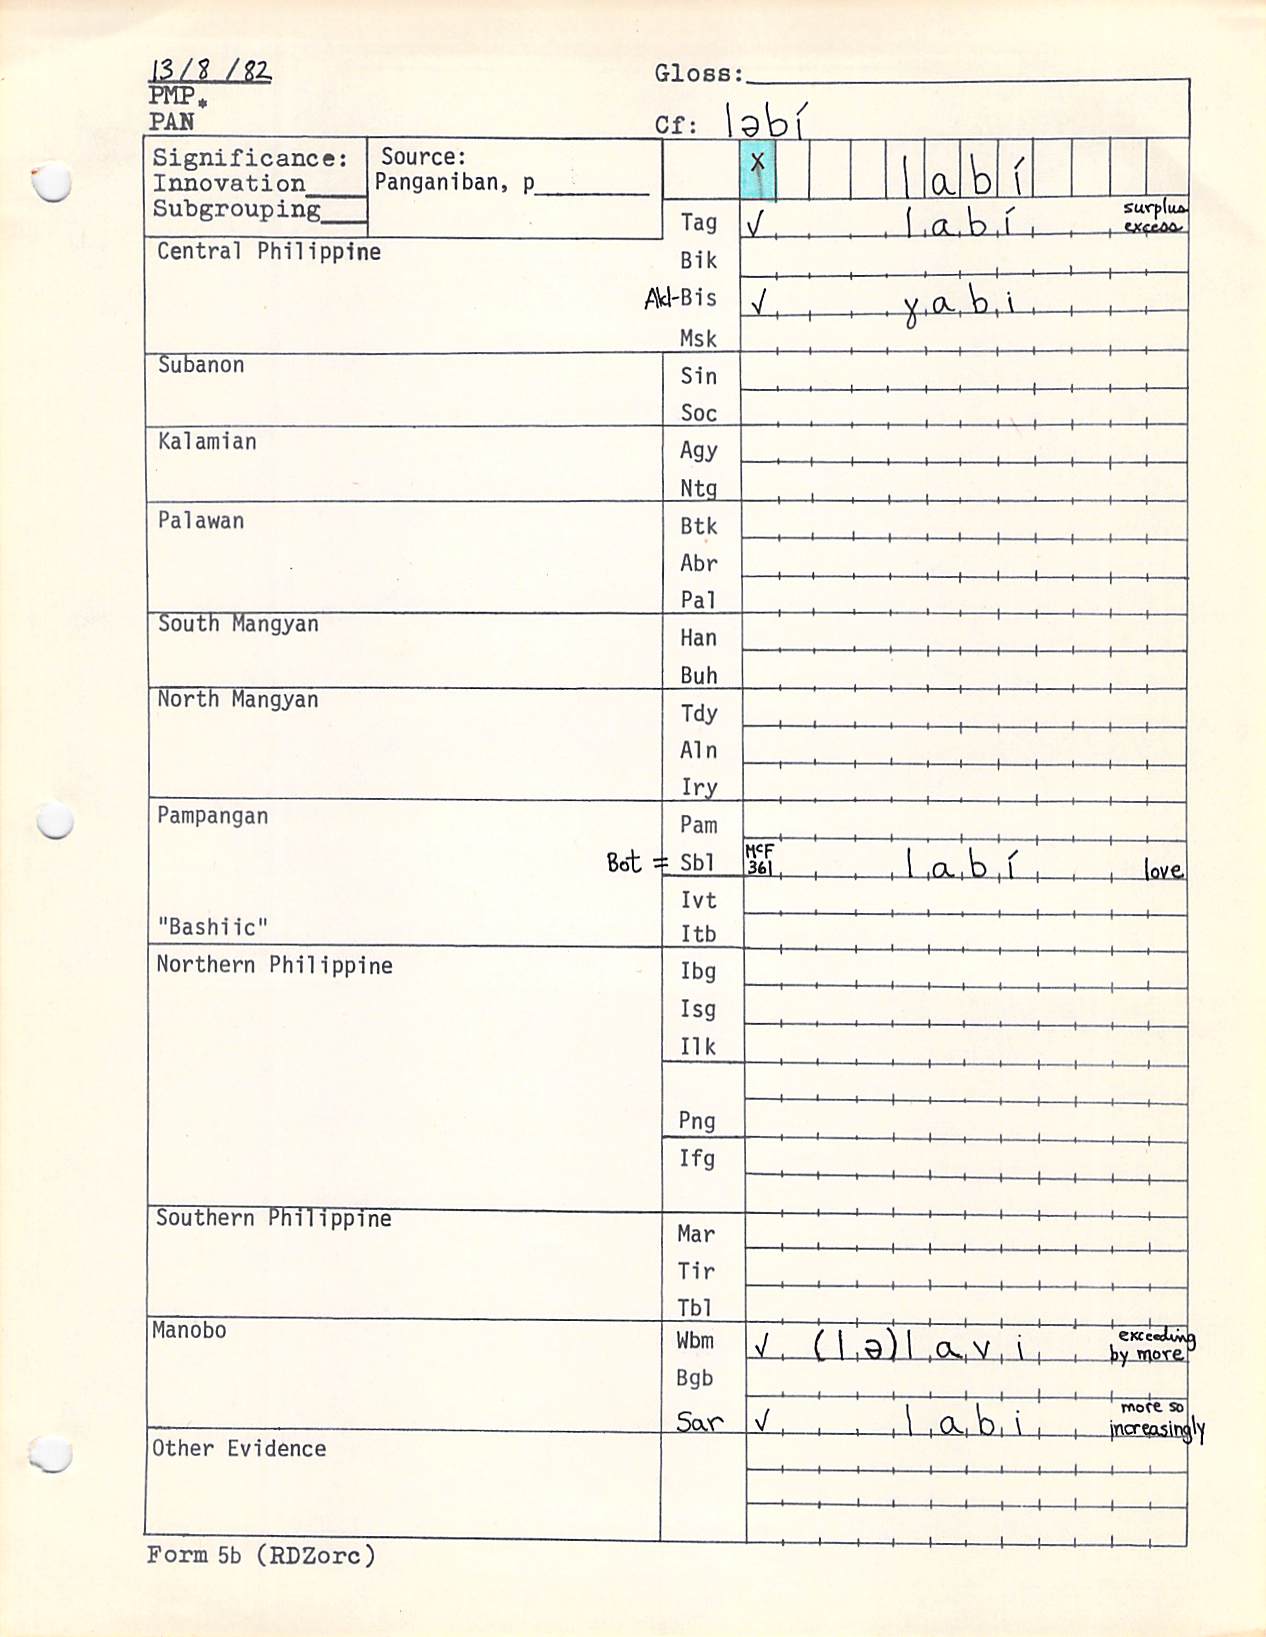 13/8/82 Gloss:
PMP*
PAN Cf: ləbí
Significance: Source: x labí
Innovation Panganiban, p
Subgrouping
Tag ✓ labí surplus excess
Central Philippine
Bik
Akl-Bis ✓ ɣabi
Msk
Subanon
Sin
Soc
Kalamian
Agy
Ntg
Palawan
Btk
Abr
Pal
South Mangyan
Han
Buh
North Mangyan
Tdy
Aln
Iry
Pampangan
Pam
Bot = Sbl McF 361 labí love
Ivt
"Bashiic"
Itb
Northern Philippine
Ibg
Isg
Ilk
Png
Ifg
Southern Philippine
Mar
Tir
Tbl
Manobo
Wbm ✓ (lə)lavi exceeding by more
Bgb
Sar ✓ labi more so increasingly
Other Evidence
Form 5b (RDZorc)